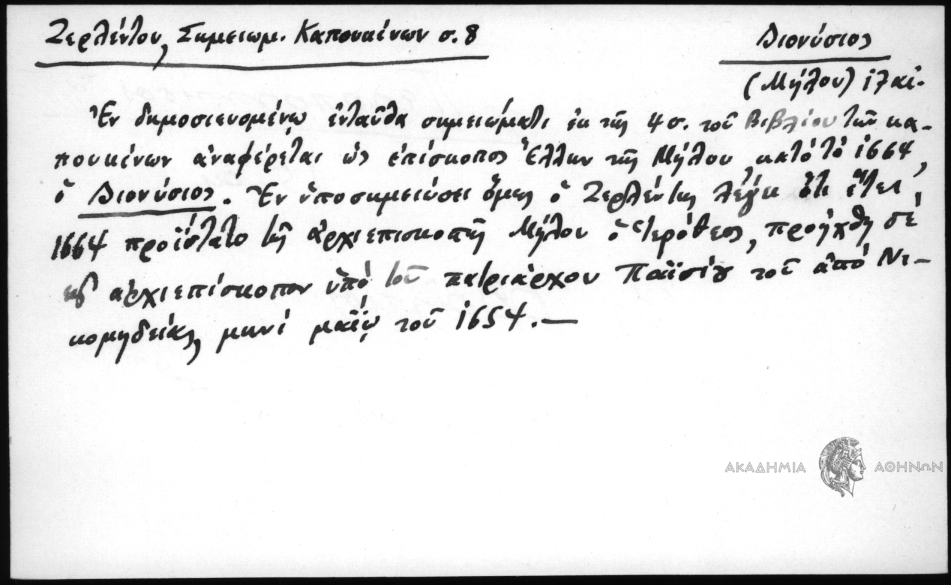 Ζερλέντου, Σημειωμ. Καπουκίνων σ. 8
Διονύσιος
(Μήλου) ιζ αἰ.
Ἐν δημοσιευομένῳ ἐνταῦθα σημειώματι ἐκ τῆς 4 σ. τοῦ Βιβλίου τῶν κα-
πουκίνων ἀναφέρεται ὡς ἐπίσκοπος Ἑλλην τῆς Μήλου, κατὰ τὸ 1664,
ὁ Διονύσιος. Ἐν ὑποσημειώσει ὅμως ὁ Ζερλέντης λέγει ὅτι ἔτει
1664 προΐστατο τῆς ἀρχιεπισκοπῆς Μήλου ὁ Ἱερόθεος, προήχθη δέ
εἰς ἀρχιεπίσκοπον ὑπό τοῦ πατριάρχου Παϊσίου τοῦ ἀπό Νι-
κομηδείας, μηνί μαΐῳ τοῦ 1654. —
ΑΚΑΔΗΜΙΑ ΑΘΗΝΩΝ